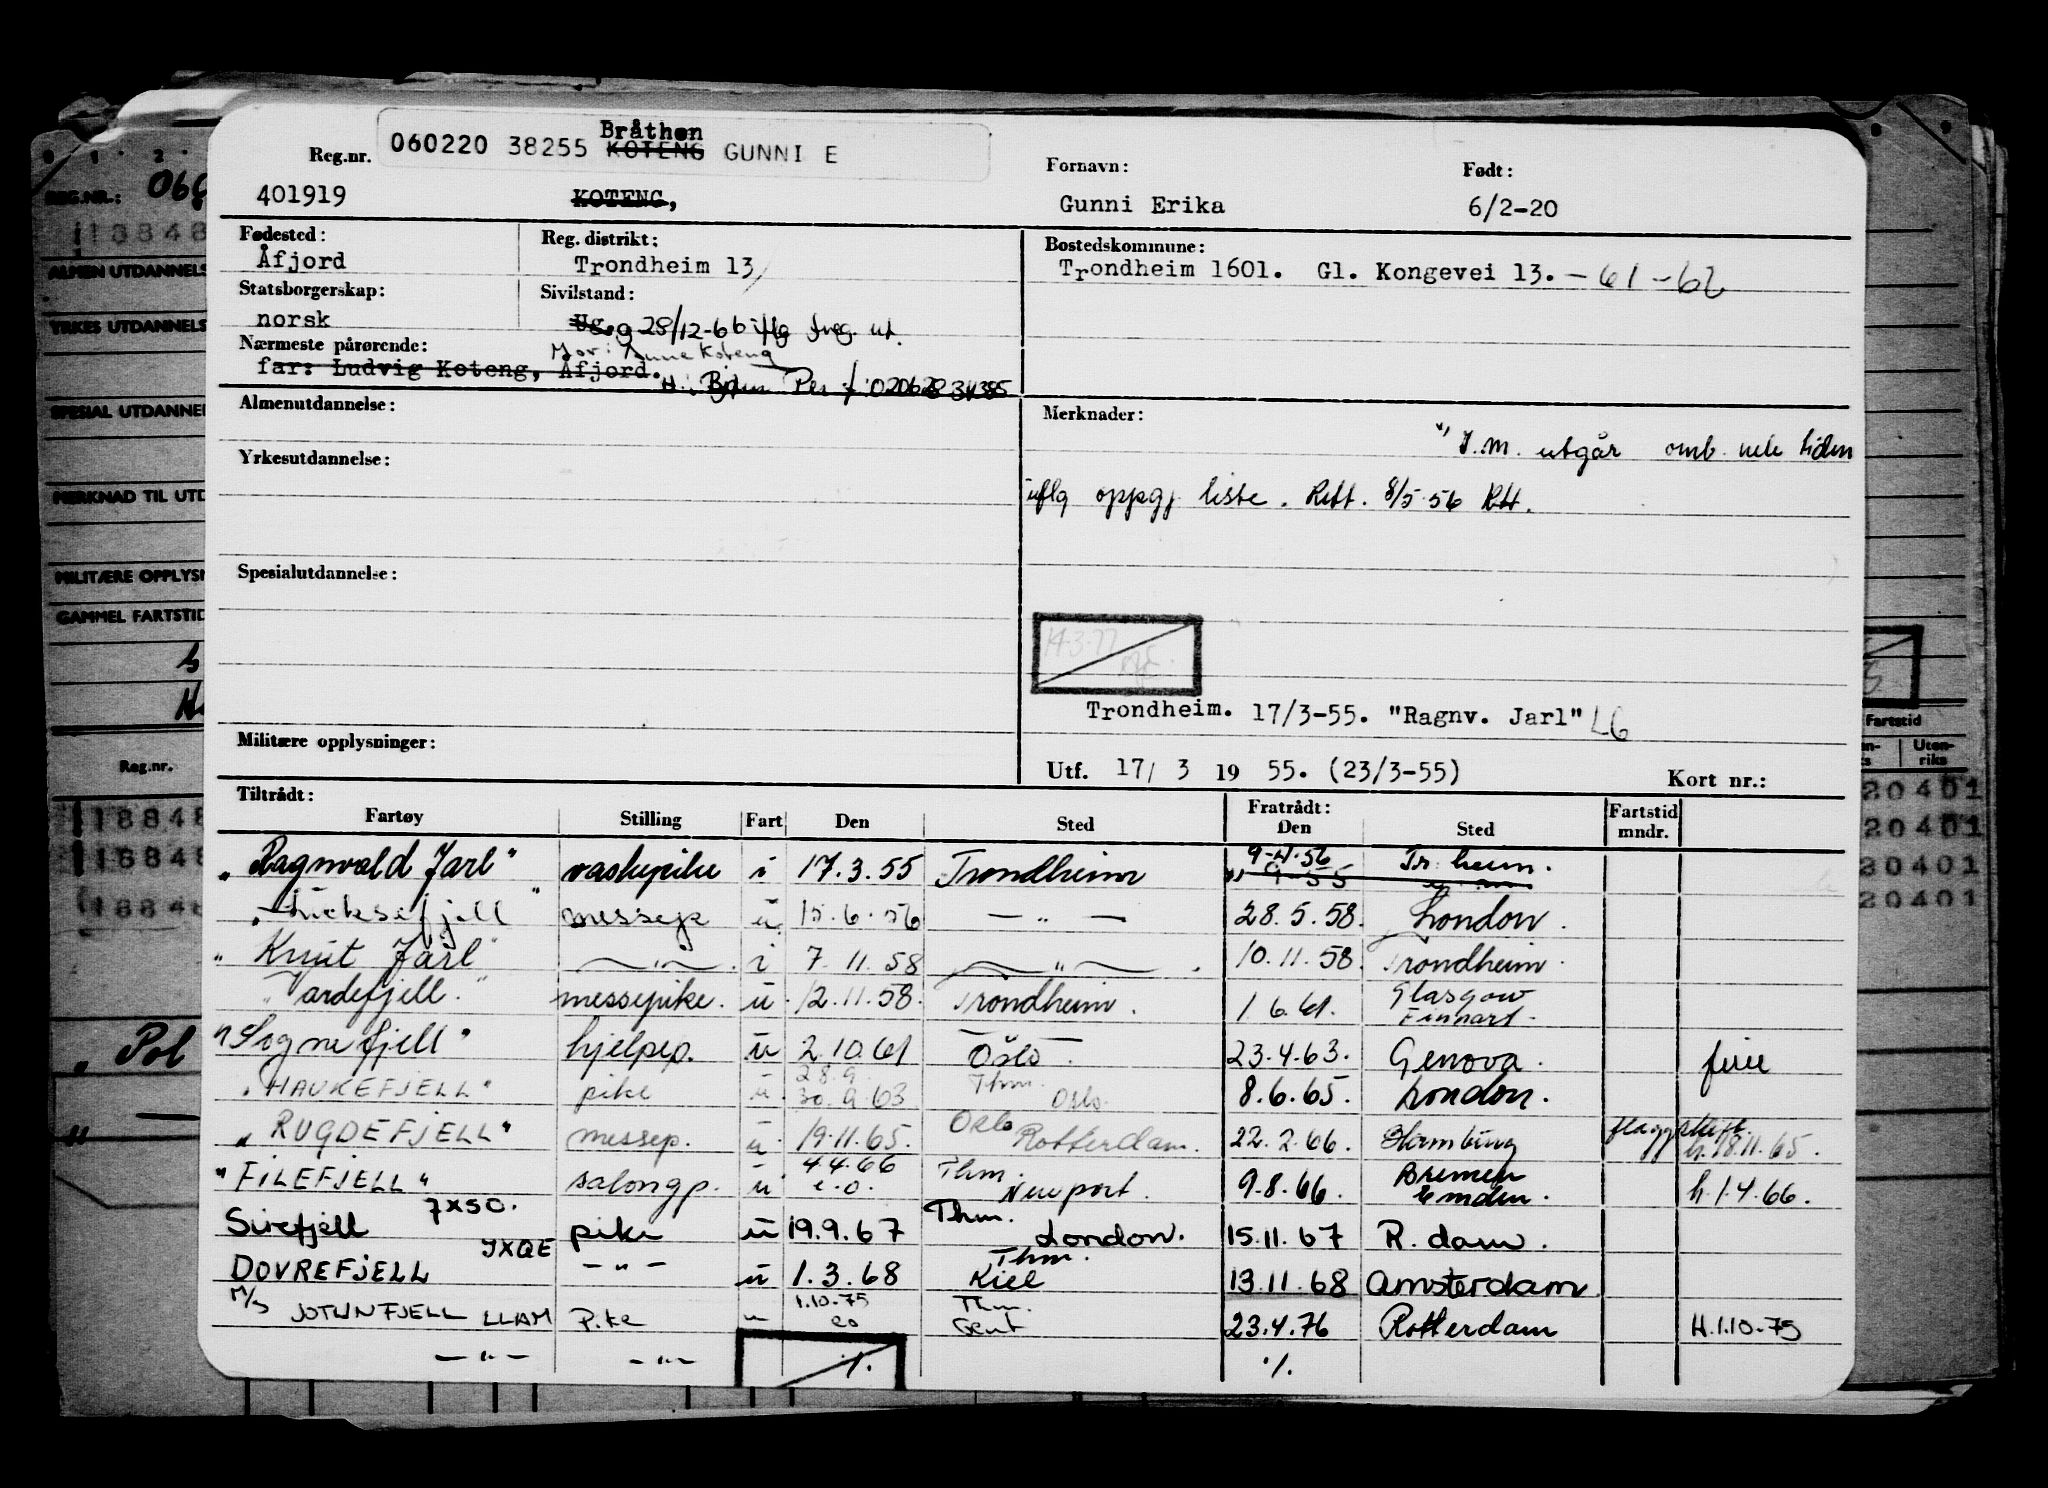 Bråthen
Reg.nr. 060220 38255 KOTENG GUNNI E Fornavn: Født:
401919 KOTENG, Gunni Erika 6/2-20
Fødested: Reg. distrikt: Bostedskommune:
Åfjord Trondheim 13 Trondheim 1601. Gl. Kongevei 13. - 61 - 62
Statsborgerskap: Sivilstand:
norsk Ug. g 28/12-66 iflg freg. ut.
Nærmeste pårørende: Mor: Anne Koteng
far: Ludvig Koteng, Åfjord.
Almenutdannelse: Merknader:
"/ I.M. utgår omb. hele tiden
Yrkesutdannelse:
iflg oppgj. liste. Rett. 8/5-56
Spesialutdannelse:
14.3.77
Trondheim. 17/3-55. "Ragnv. Jarl" LG
Militære opplysninger:
Utf. 17/ 3 19 55. (23/3-55) Kort nr.:
Tiltrådt: Fratrådt: Fartstid
Fartøy Stilling Fart Den Sted Den Sted mndr.
9-4-56 Tr.heim.
"Ragnvald Jarl" vaskepike i 17.3.55 Trondheim
messepi u 15.6.56 — " — 28.5.58. London.
"Knut Jarl" — " — i 7.11.58 — " — 10.11.58. Trondheim.
"Vardefjell." messepike. u. 12.11.58. Trondheim. 1.6.61. Glasgow
Finnart.
"Sognefjell" hjelpep. u 2.10.61 Oslo. 23.4.63. Genova. ferie
28.9 Thm.
"HAUKEFJELL" pike u. 30.9.63 Oslo. 8.6.65. London.
Oslo flaggskift.
"RUGDEFJELL" messep. u 19.11.65. Rotterdam. 22.2.66. Hamburg h.18.11.65.
4.4.66 Thm. Bremen
"FILEFJELL" salongp. u e.o. Newport. 9.8.66. Emden. h.1.4.66.
7XSO. Thm.
Sirefjell pike u 19.9.67 London. 15.11.67 R.dam.
JXQE Thm.
DOVREFJELL — " — u 1.3.68 Kiel 13.11.68 Amsterdam
M/S 1.10.75 Thm.
JOTUNFJELL LLAM Pike u eo Gent 23.4.76 Rotterdam H.1.10-75
— " — — " — ·/. ·/.
REG.NR.:
18848
ALMEN UTDANNELS
YRKES UTDANNELS
SPESIAL UTDANNEL
MERKNAD TIL UTD
MILITÆRE OPPLYSN
GAMMEL FARTSTID
Reg.nr.
18848
18848
1884
"Pol
Fartstid
Uten-
riks
20401
20401
20401
20401